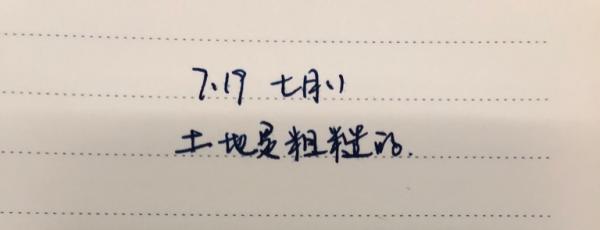 7.19 七月八
土地是粗糙的.